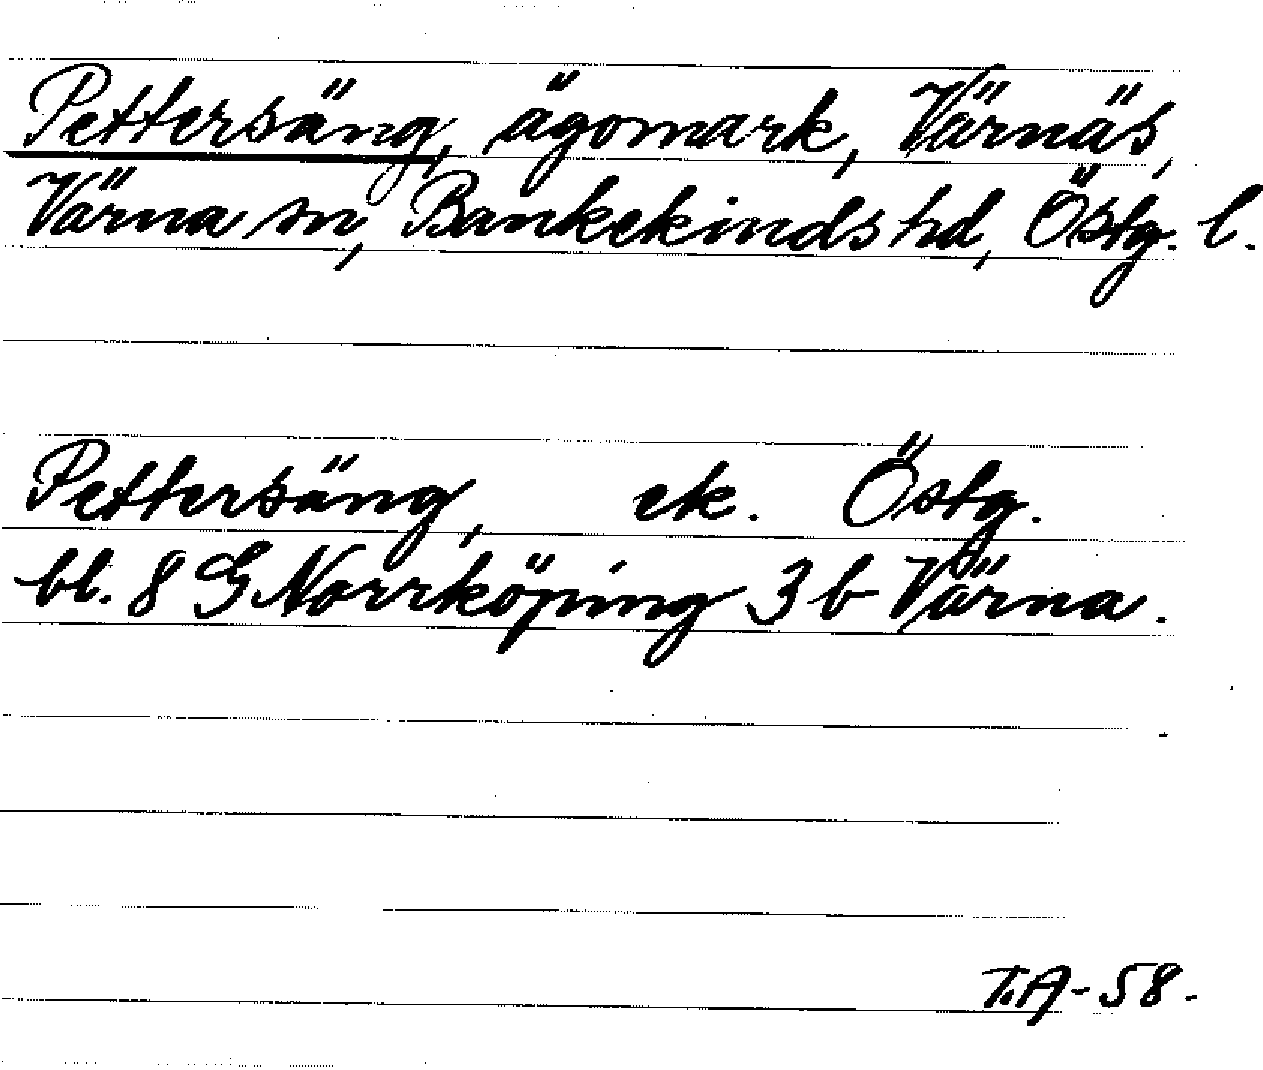 Pettersäng, ägomark, Värnäs,
Värna sn, Bankekinds hd, Östg. l.
Pettersäng, ek. Östg.
bl. 8 G Norrköping 3 b Värna.
T.A-58.